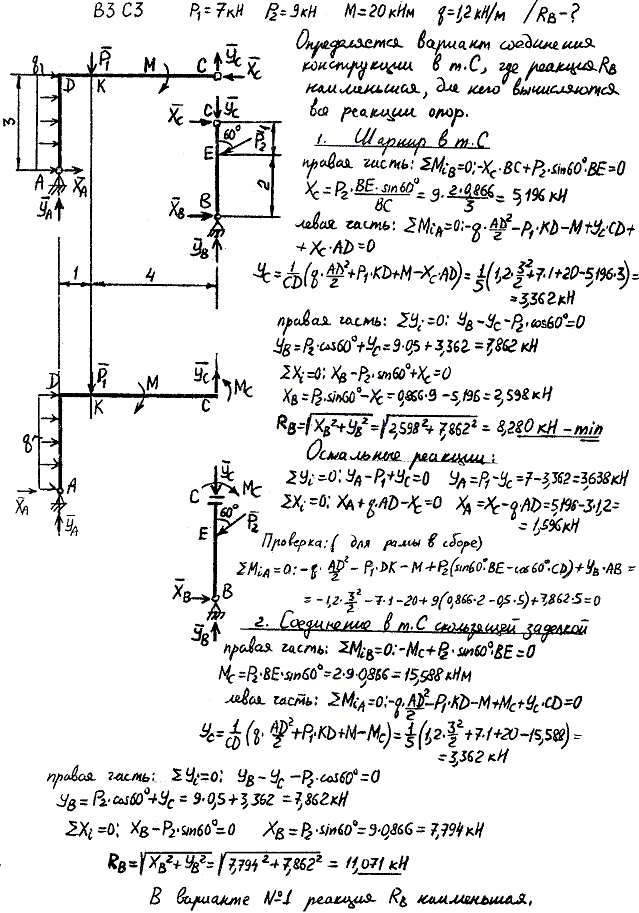 В3 С3 P₁=7кН P₂=9кН M=20кНм q=1,2кН/м /R_B-?
Определяется вариант соединения
конструкции в т.С, где реакция R_B
наименьшая, для него вычисляются
все реакции опор.
1. Шарнир в т.С
правая часть: ΣM_iB=0; -X_C·BC+P₂·sin60°·BE=0
X_C=P₂·BE·sin60°/BC=9·2·0,866/3=5,196кН
левая часть: ΣM_iA=0; -q·AD²/2-P₁·KD-M+Y_C·CD+
+X_C·AD=0
Y_C=1/CD(q·AD²/2+P₁·KD+M-X_C·AD)=1/5(1,2·3²/2+7·1+20-5,196·3)=
=3,362кН
правая часть: ΣY_i=0; Y_B-Y_C-P₂·cos60°=0
Y_B=P₂·cos60°+Y_C=9·0,5+3,362=7,862кН
ΣX_i=0; X_B-P₂·sin60°+X_C=0
X_B=P₂·sin60°-X_C=0,866·9-5,196=2,598кН
R_B=√X_B²+Y_B²=√2,598²+7,862²=8,280кН-min
Остальные реакции:
ΣY_i=0; Y_A-P₁+Y_C=0 Y_A=P₁-Y_C=7-3,362=3,638кН
ΣX_i=0; X_A+q·AD-X_C=0 X_A=X_C-q·AD=5,196-3·1,2=
=1,596кН
Проверка: (для рамы в сборе)
ΣM_iA=0; -q·AD²/2-P₁·DK-M+P₂(sin60°·BE-cos60°·CD)+Y_B·AB=
=-1,2·3²/2-7·1-20+9(0,866·2-0,5·5)+7,862·5=0
2. Соединение в т.С скользящей заделкой
правая часть: ΣM_iB=0; -M_C+P₂·sin60°·BE=0
M_C=P₂·BE·sin60°=2·9·0,866=15,588кНм
левая часть: ΣM_iA=0; -q·AD²/2-P₁·KD-M+M_C+Y_C·CD=0
Y_C=1/CD(q·AD²/2+P₁·KD+M-M_C)=1/5(1,2·3²/2+7·1+20-15,588)=
=3,362кН
правая часть: ΣY_i=0; Y_B-Y_C-P₂·cos60°=0
Y_B=P₂·cos60°+Y_C=9·0,5+3,362=7,862кН
ΣX_i=0; X_B-P₂·sin60°=0 X_B=P₂·sin60°=9·0,866=7,794кН
R_B=√X_B²+Y_B²=√7,794²+7,862²=11,071кН
В варианте №1 реакция R_B наименьшая.
q P̄₁ M C Ȳ_C X̄_C
D K
3
A X̄_A Ȳ_A
X̄_C C Ȳ_C
60° P̄₂ 1
E
2
X̄_B B
Ȳ_B
1 4
D P̄₁ K M C Ȳ_C M_C
q
X̄_A A
Ȳ_A
Ȳ_C
C M_C
60° P̄₂
E
X̄_B B
Ȳ_B